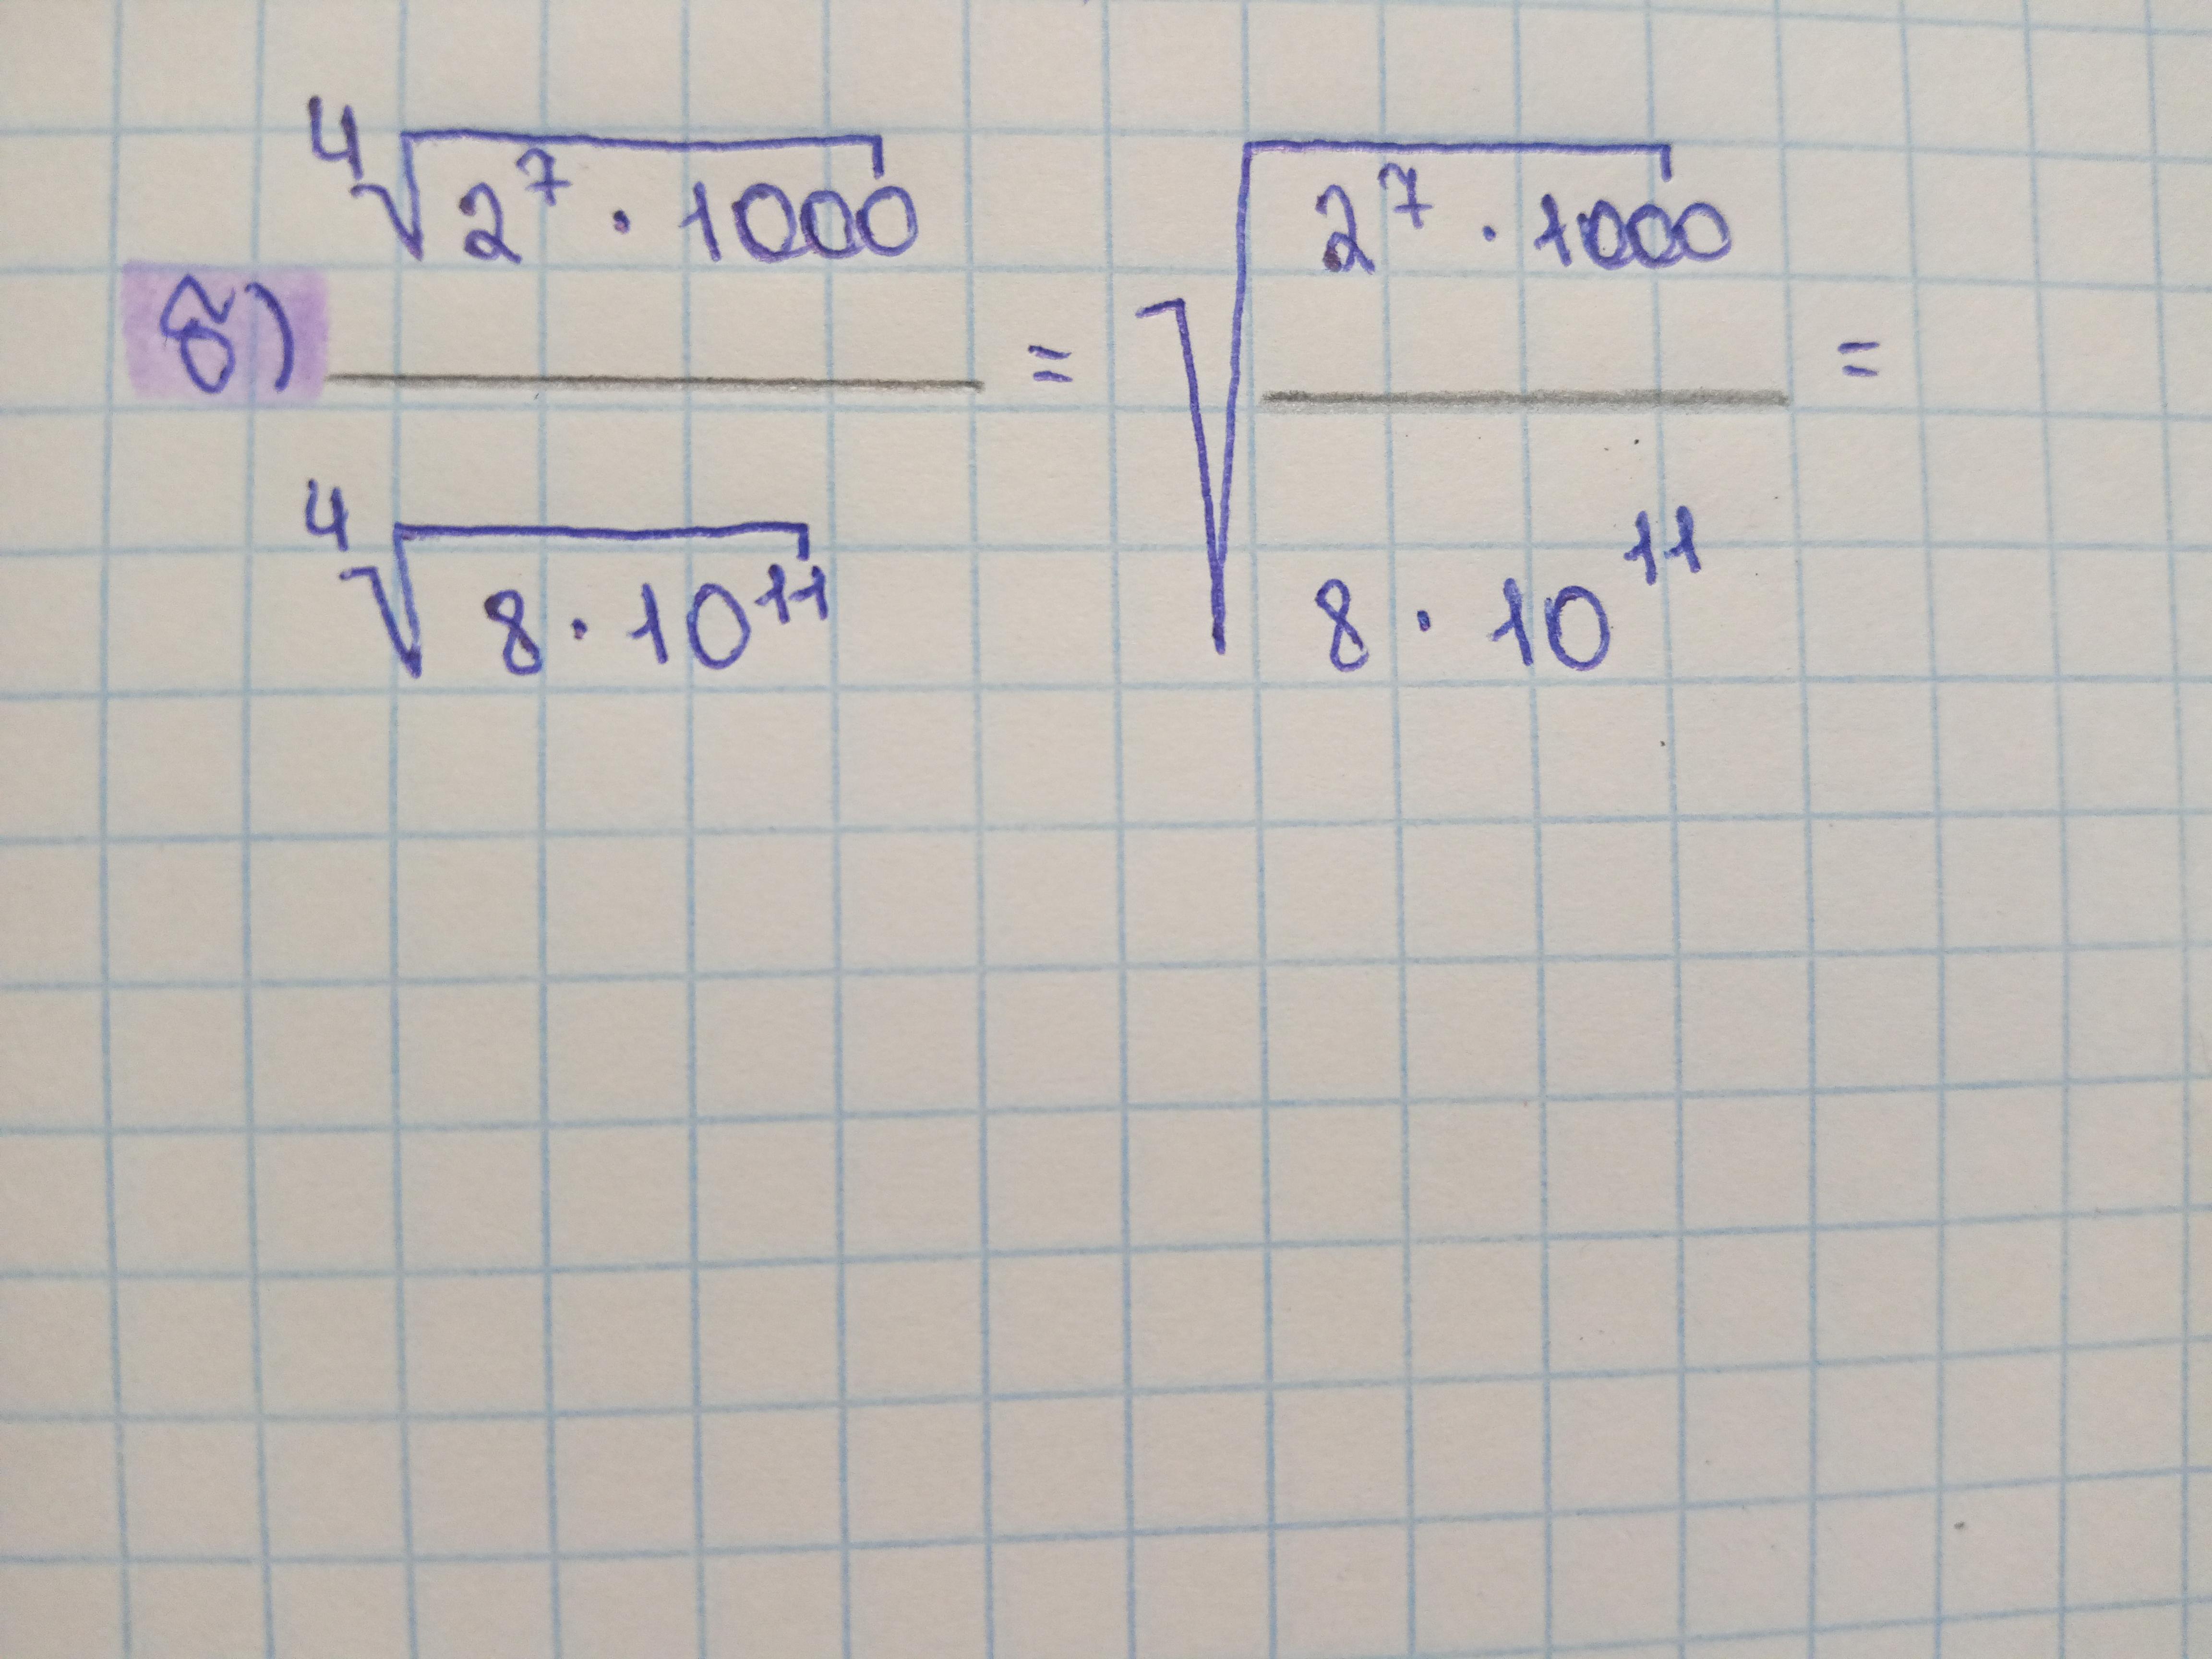 б) ⁴√(2⁷ · 1000) / ⁴√(8 · 10¹¹) = √(2⁷ · 1000 / 8 · 10¹¹) =